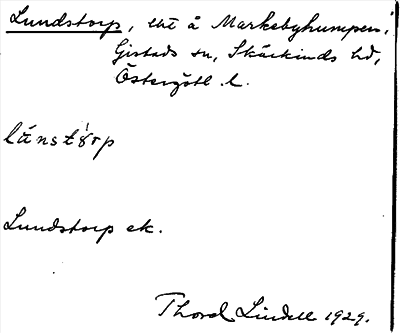 Lundstorp, lht å Markebyhumpen,
Gistads sn, Skärkinds hd,
Östergötl. l.
lúnstórp
Lundstorp ek.
Thord Lindell 1929.